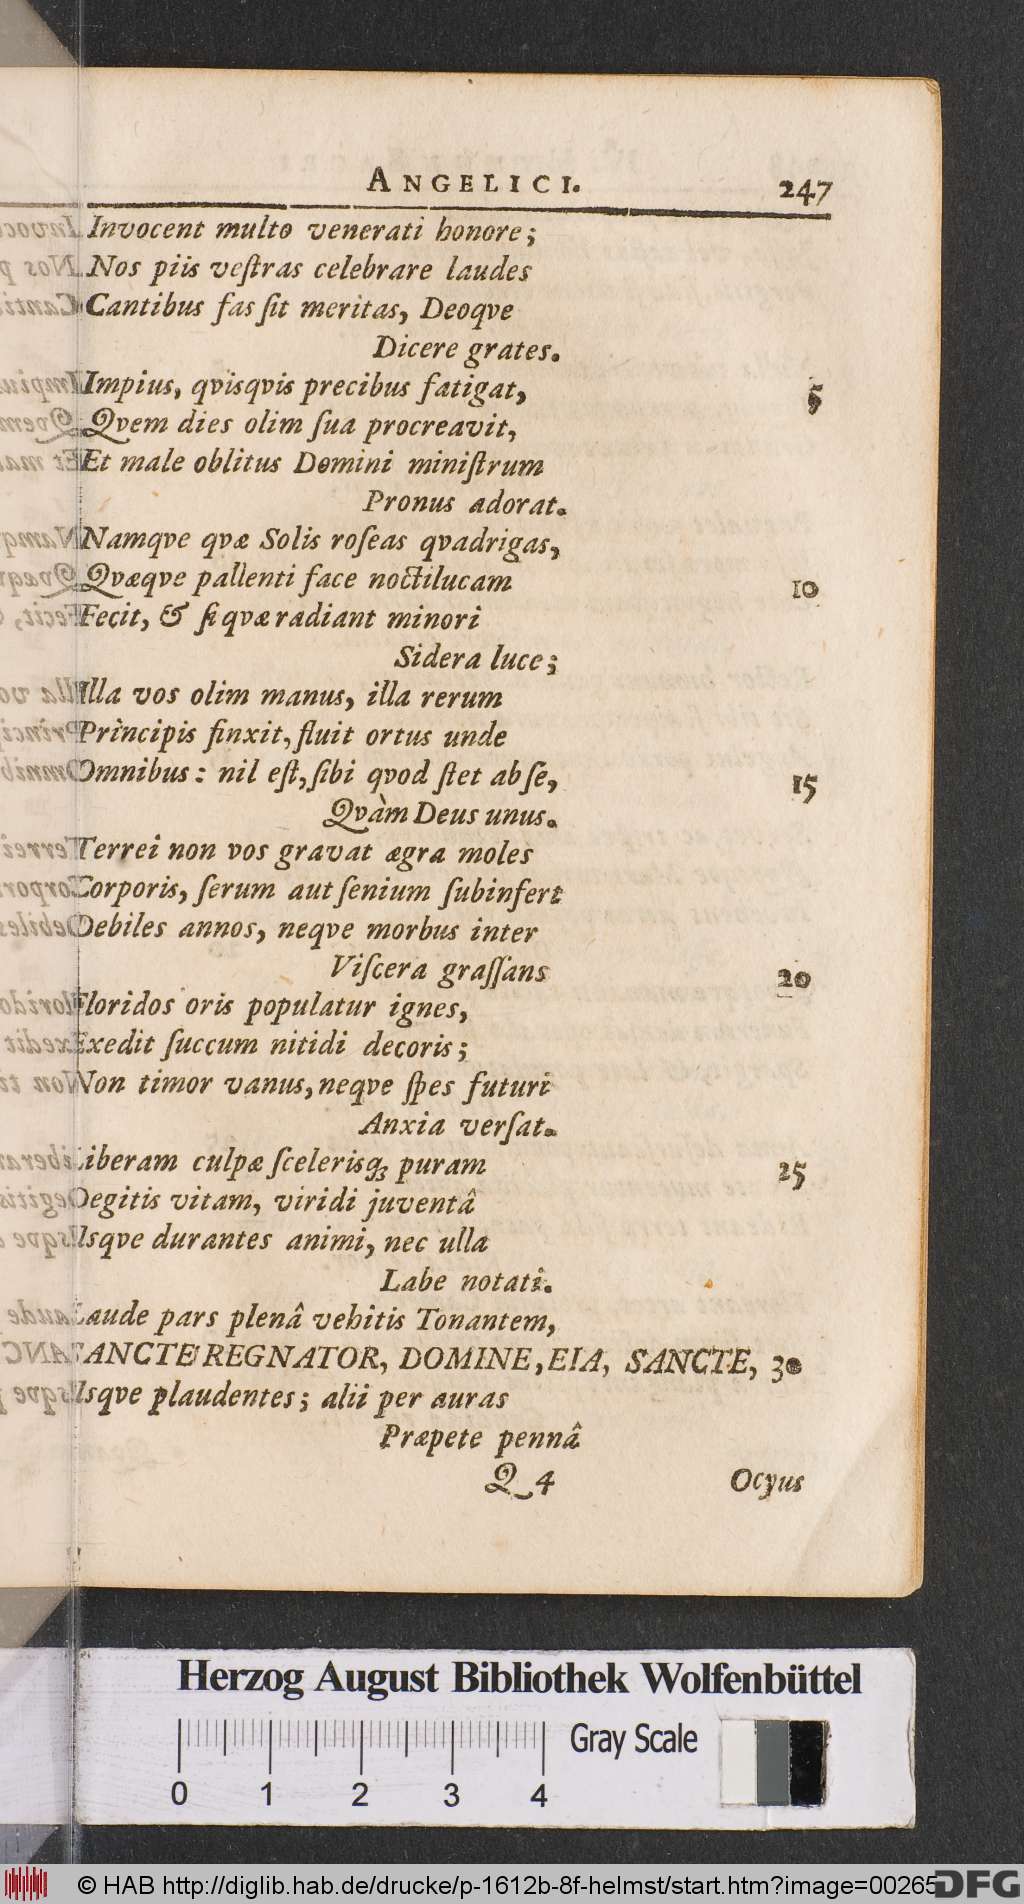 ANGELICI. 247
Invocent multo venerati honore;
Nos piis veſtras celebrare laudes
Cantibus fas ſit meritas, Deoqve
Dicere grates.
Impius, qvisqvis precibus fatigat, 5
Qvem dies olim ſua procreavit,
Et male oblitus Domini miniſtrum
Pronus adorat.
Namqve qvæ Solis roſeas qvadrigas,
Qvæqve pallenti face noctilucam 10
Fecit, & ſi qvæ radiant minori
Sidera luce;
Illa vos olim manus, illa rerum
Principis finxit, fluit ortus unde
Omnibus: nil eſt, ſibi qvod ſtet ab ſe, 15
Qvàm Deus unus.
Terrei non vos gravat ægra moles
Corporis, ſerum aut ſenium ſubinfert
Debiles annos, neqve morbus inter
Viſcera graſſans 20
Floridos oris populatur ignes,
Exedit ſuccum nitidi decoris;
Non timor vanus, neqve ſpes futuri
Anxia verſat.
Liberam culpæ ſcelerisq; puram 25
Degitis vitam, viridi juventâ
Usqve durantes animi, nec ulla
Labe notati.
Laude pars plenâ vehitis Tonantem,
SANCTE REGNATOR, DOMINE, EIA, SANCTE, 30
Usqve plaudentes; alii per auras
Præpete pennâ
Q 4 Ocyus
Herzog August Bibliothek Wolfenbüttel
Gray Scale
0 1 2 3 4
© HAB http://diglib.hab.de/drucke/p-1612b-8f-helmst/start.htm?image=00265
DFG